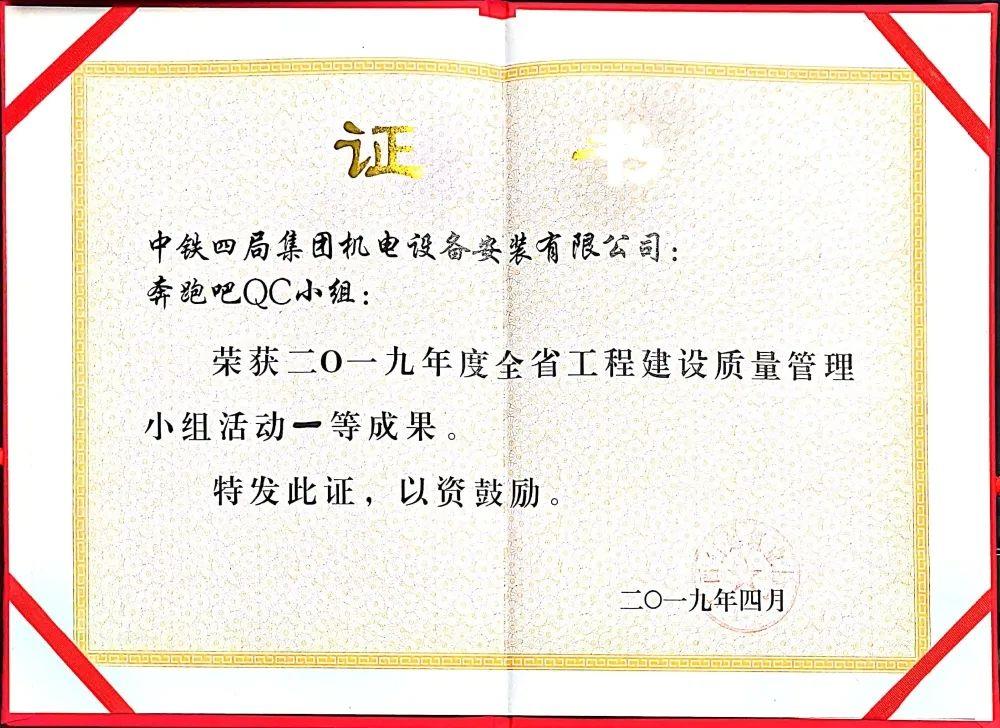 证书
中铁四局集团机电设备安装有限公司：
奔跑吧QC小组：
荣获二〇一九年度全省工程建设质量管理
小组活动一等成果。
特发此证，以资鼓励。
二〇一九年四月